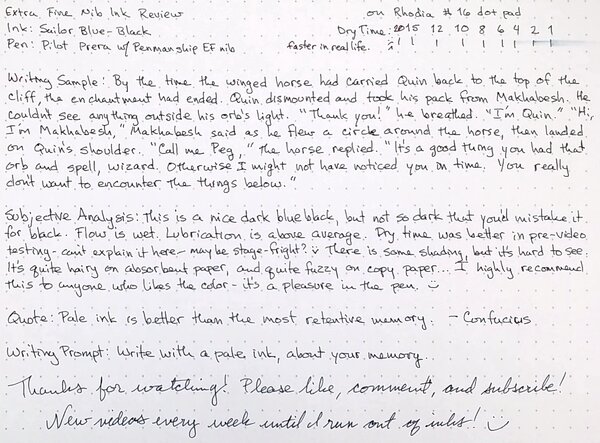 Extra Fine Nib Ink Review on Rhodia #16 dot pad
Ink: Sailor Blue-Black Dry Time: 20 15 12 10 8 6 4 2 1
Pen: Pilot Prera w/ Penmanship EF nib faster in real life.
Writing Sample: By the time the winged horse had carried Quin back to the top of the
cliff, the enchantment had ended. Quin dismounted and took his pack from Makhabesh. He
couldn't see anything outside his orb's light. "Thank you!" he breathed. "I'm Quin." "Hi,
I'm Makhabesh," Makhabesh said as he flew a circle around the horse, then landed
on Quin's shoulder. "Call me Peg," the horse replied. "It's a good thing you had that
orb and spell, wizard. Otherwise I might not have noticed you in time. You really
don't want to encounter the things below."
Subjective Analysis: This is a nice dark blue black, but not so dark that you'd mistake it
for black. Flow is wet. Lubrication is above average. Dry time was better in pre-video
testing - can't explain it here - maybe stage-fright? :) There is some shading, but it's hard to see.
It's quite hairy on absorbent paper, and quite fuzzy on copy paper... I highly recommend
this to anyone who likes the color - it's a pleasure in the pen. :)
Quote: Pale ink is better than the most retentive memory. - Confucius
Writing Prompt: Write with a pale ink, about your memory...
Thanks for watching! Please like, comment, and subscribe!
New videos every week until I run out of inks! :)